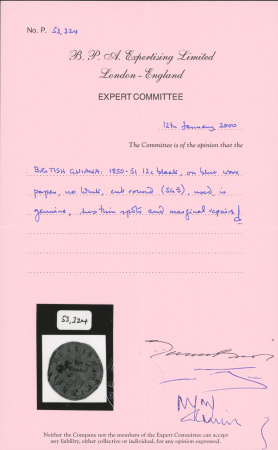 No. P. 53,324
B. P. A. Expertising Limited
London - England
EXPERT COMMITTEE
12th January 2000
The Committee is of the opinion that the
BRITISH GUIANA: 1850-51 12c black, on blue wove
paper, no initials, cut round (SG5), used, is
genuine, has thin spots and marginal repairs
53,324
Neither the Company nor the members of the Expert Committee can accept
any liability, either collective or individual, for any opinion expressed.